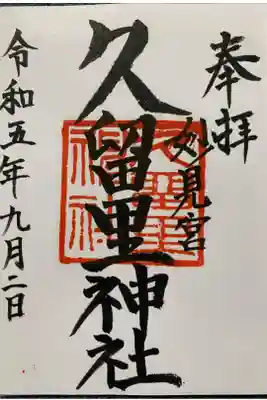 奉拝
妙見宮
久留里神社
令和五年九月二日